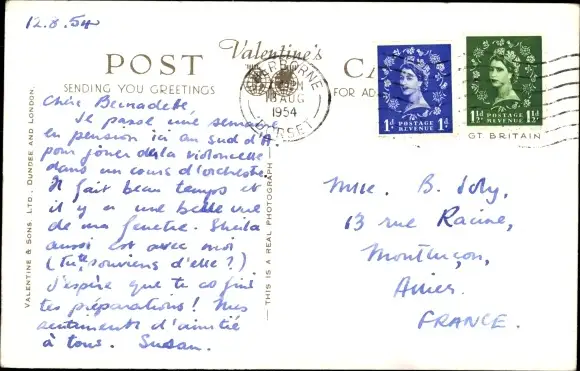 12.8.54
POST Valentine's CARD
SENDING YOU GREETINGS
FOR AD
SHERBORNE
18 AUG
1954
DORSET
1D POSTAGE REVENUE 1D
1½D POSTAGE REVENUE 1½D
GT BRITAIN
Chère Bernadette,
Je passe une semaine
en pension ici au sud d'A
pour jouer de la violoncelle
dans un cours d'orchestre.
Il fait beau temps et
il y a une belle vue
de ma fenetre. Sheila
aussi est avec moi
(Tu te souviens d'elle?)
J'espère que tu as fini
tes préparations! Mes
sentiments d'amitié
à tous. Susan.
Mlle. B. Joly,
13 rue Racine,
Montluçon,
Allier.
FRANCE.
VALENTINE & SONS LTD., DUNDEE AND LONDON.
THIS IS A REAL PHOTOGRAPH